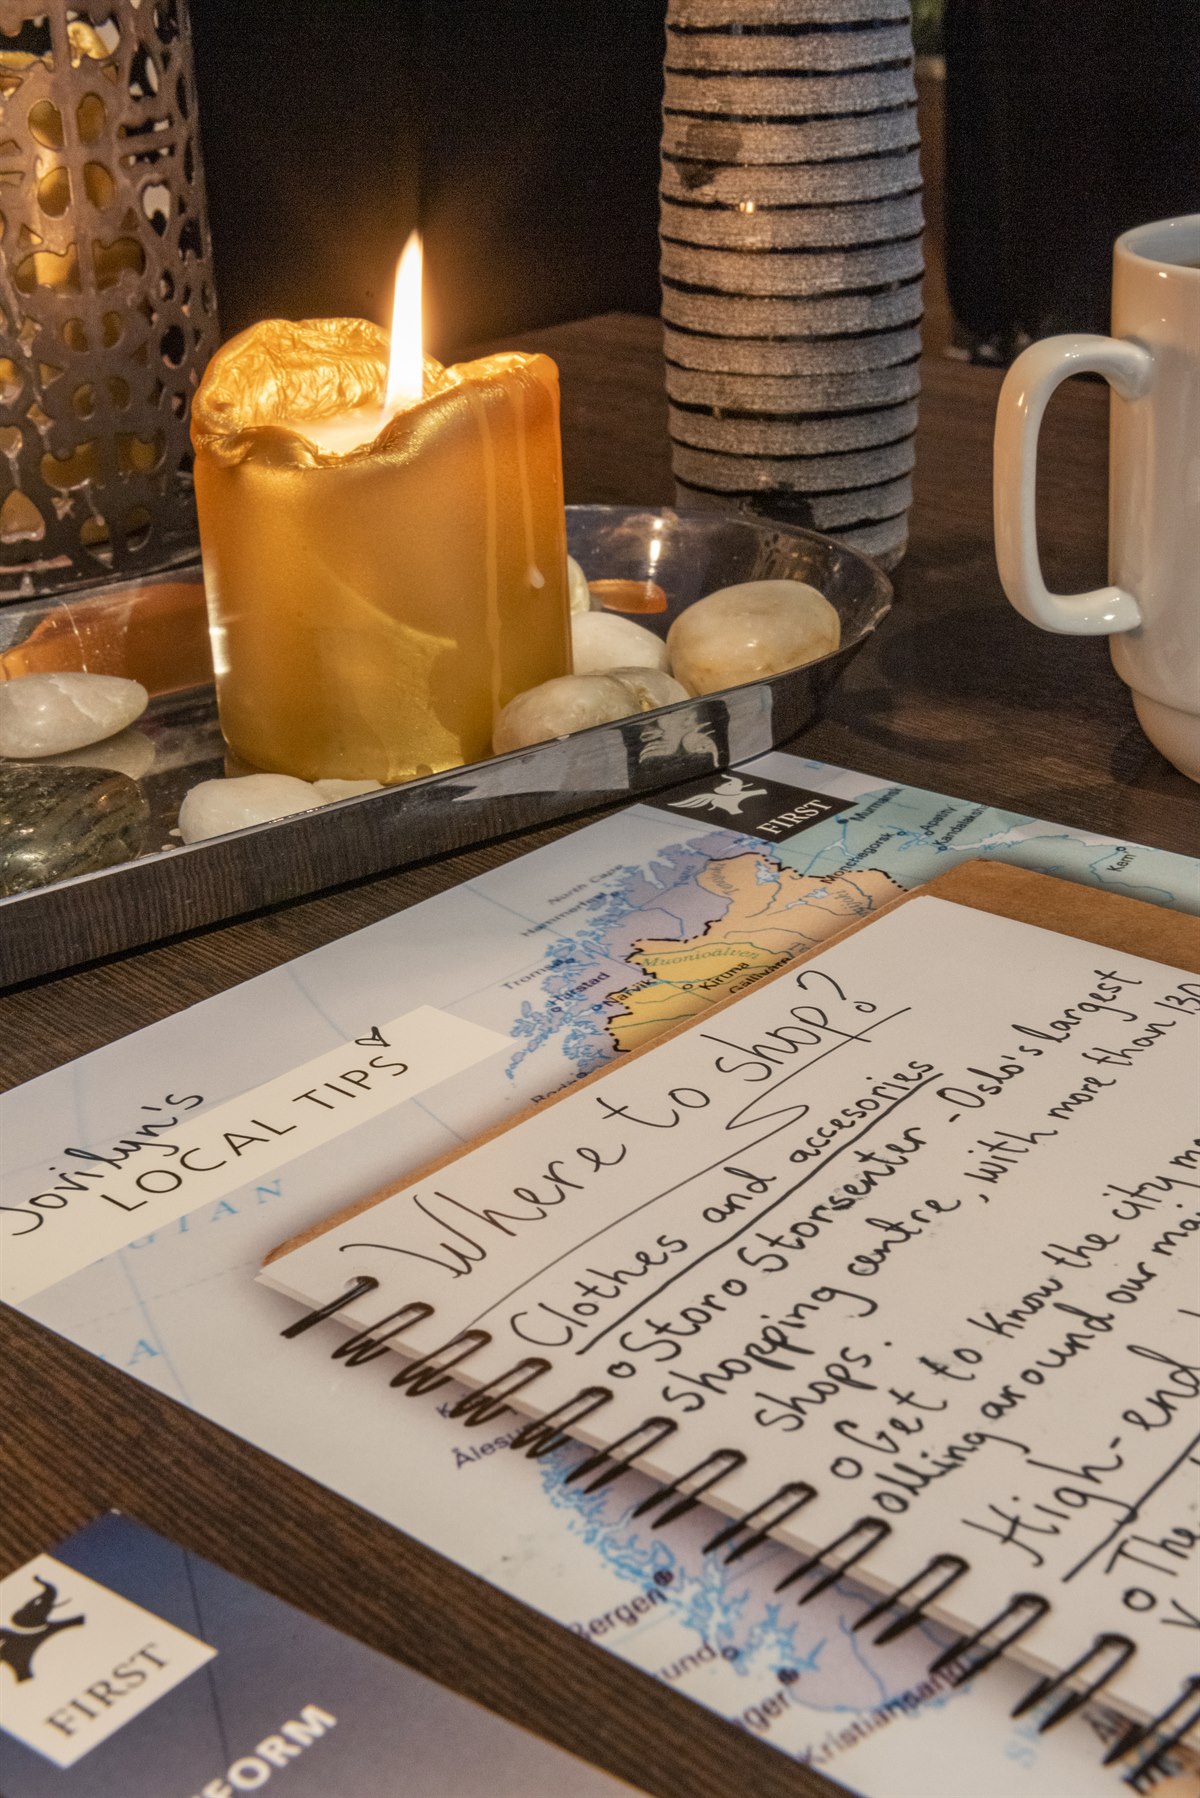 FIRST
Murmansk
Apatity
Kandalaksha
Monchegorsk
Kem
North Cape
Hammerfest
Tromsø
Harstad
Narvik
Muonioälven
Kiruna
Gällivare
Jorilyn's
LOCAL TIPS
Where to shop?
Clothes and accesories
o Storo Storsenter - Oslo's largest
shopping centre, with more than 130
shops.
o Get to know the city
olling around our
High-end
o The
Bergen
Kristiansand
FIRST
FORM